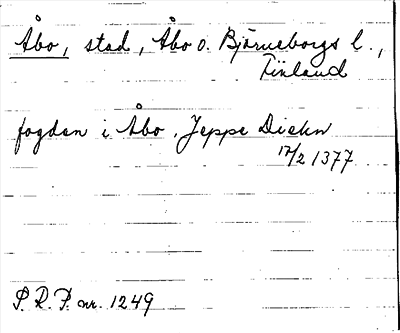 Åbo, stad, Åbo o. Björneborgs l.,
Finland
fogden i Åbo, Jeppe Diekn
17/2 1377
S.R.P. nr. 1249